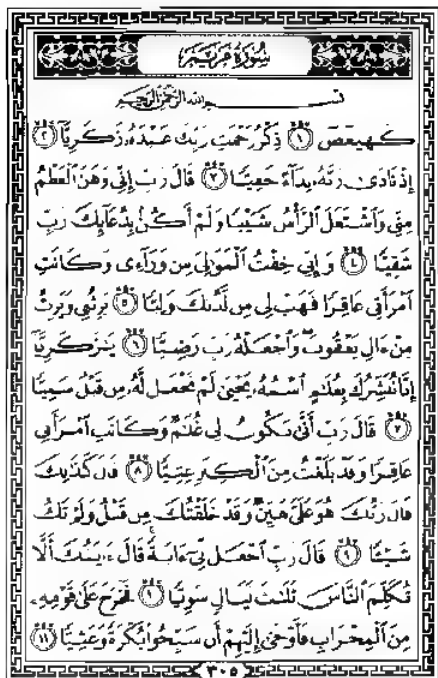 سُورَةُ مَرْيَمَ
بِسْمِ اللَّهِ الرَّحْمَٰنِ الرَّحِيمِ
كٓهيعٓصٓ ١ ذِكْرُ رَحْمَتِ رَبِّكَ عَبْدَهُۥ زَكَرِيَّآ ٢
إِذْ نَادَىٰ رَبَّهُۥ نِدَآءً خَفِيًّا ٣ قَالَ رَبِّ إِنِّى وَهَنَ ٱلْعَظْمُ
مِنِّى وَٱشْتَعَلَ ٱلرَّأْسُ شَيْبًا وَلَمْ أَكُنۢ بِدُعَآئِكَ رَبِّ
شَقِيًّا ٤ وَإِنِّى خِفْتُ ٱلْمَوَٰلِىَ مِن وَرَآءِى وَكَانَتِ
ٱمْرَأَتِى عَاقِرًا فَهَبْ لِى مِن لَّدُنكَ وَلِيًّا ٥ يَرِثُنِى وَيَرِثُ
مِنْ ءَالِ يَعْقُوبَ وَٱجْعَلْهُ رَبِّ رَضِيًّا ٦ يَٰزَكَرِيَّآ
إِنَّا نُبَشِّرُكَ بِغُلَٰمٍ ٱسْمُهُۥ يَحْيَىٰ لَمْ نَجْعَل لَّهُۥ مِن قَبْلُ سَمِيًّا
٧ قَالَ رَبِّ أَنَّىٰ يَكُونُ لِى غُلَٰمٌ وَكَانَتِ ٱمْرَأَتِى
عَاقِرًا وَقَدْ بَلَغْتُ مِنَ ٱلْكِبَرِ عِتِيًّا ٨ قَالَ كَذَٰلِكَ
قَالَ رَبُّكَ هُوَ عَلَىَّ هَيِّنٌ وَقَدْ خَلَقْتُكَ مِن قَبْلُ وَلَمْ تَكُ
شَيْـًٔا ٩ قَالَ رَبِّ ٱجْعَل لِّىٓ ءَايَةً قَالَ ءَايَتُكَ أَلَّا
تُكَلِّمَ ٱلنَّاسَ ثَلَٰثَ لَيَالٍ سَوِيًّا ١٠ فَخَرَجَ عَلَىٰ قَوْمِهِۦ
مِنَ ٱلْمِحْرَابِ فَأَوْحَىٰٓ إِلَيْهِمْ أَن سَبِّحُوا۟ بُكْرَةً وَعَشِيًّا ١١
٣٠٥